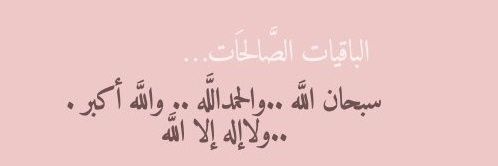 الباقيات الصَّالحَات...
سبحان اللَّه ..والحمداللَّه .. واللَّه أكبر .
..ولاإله إلا اللَّه